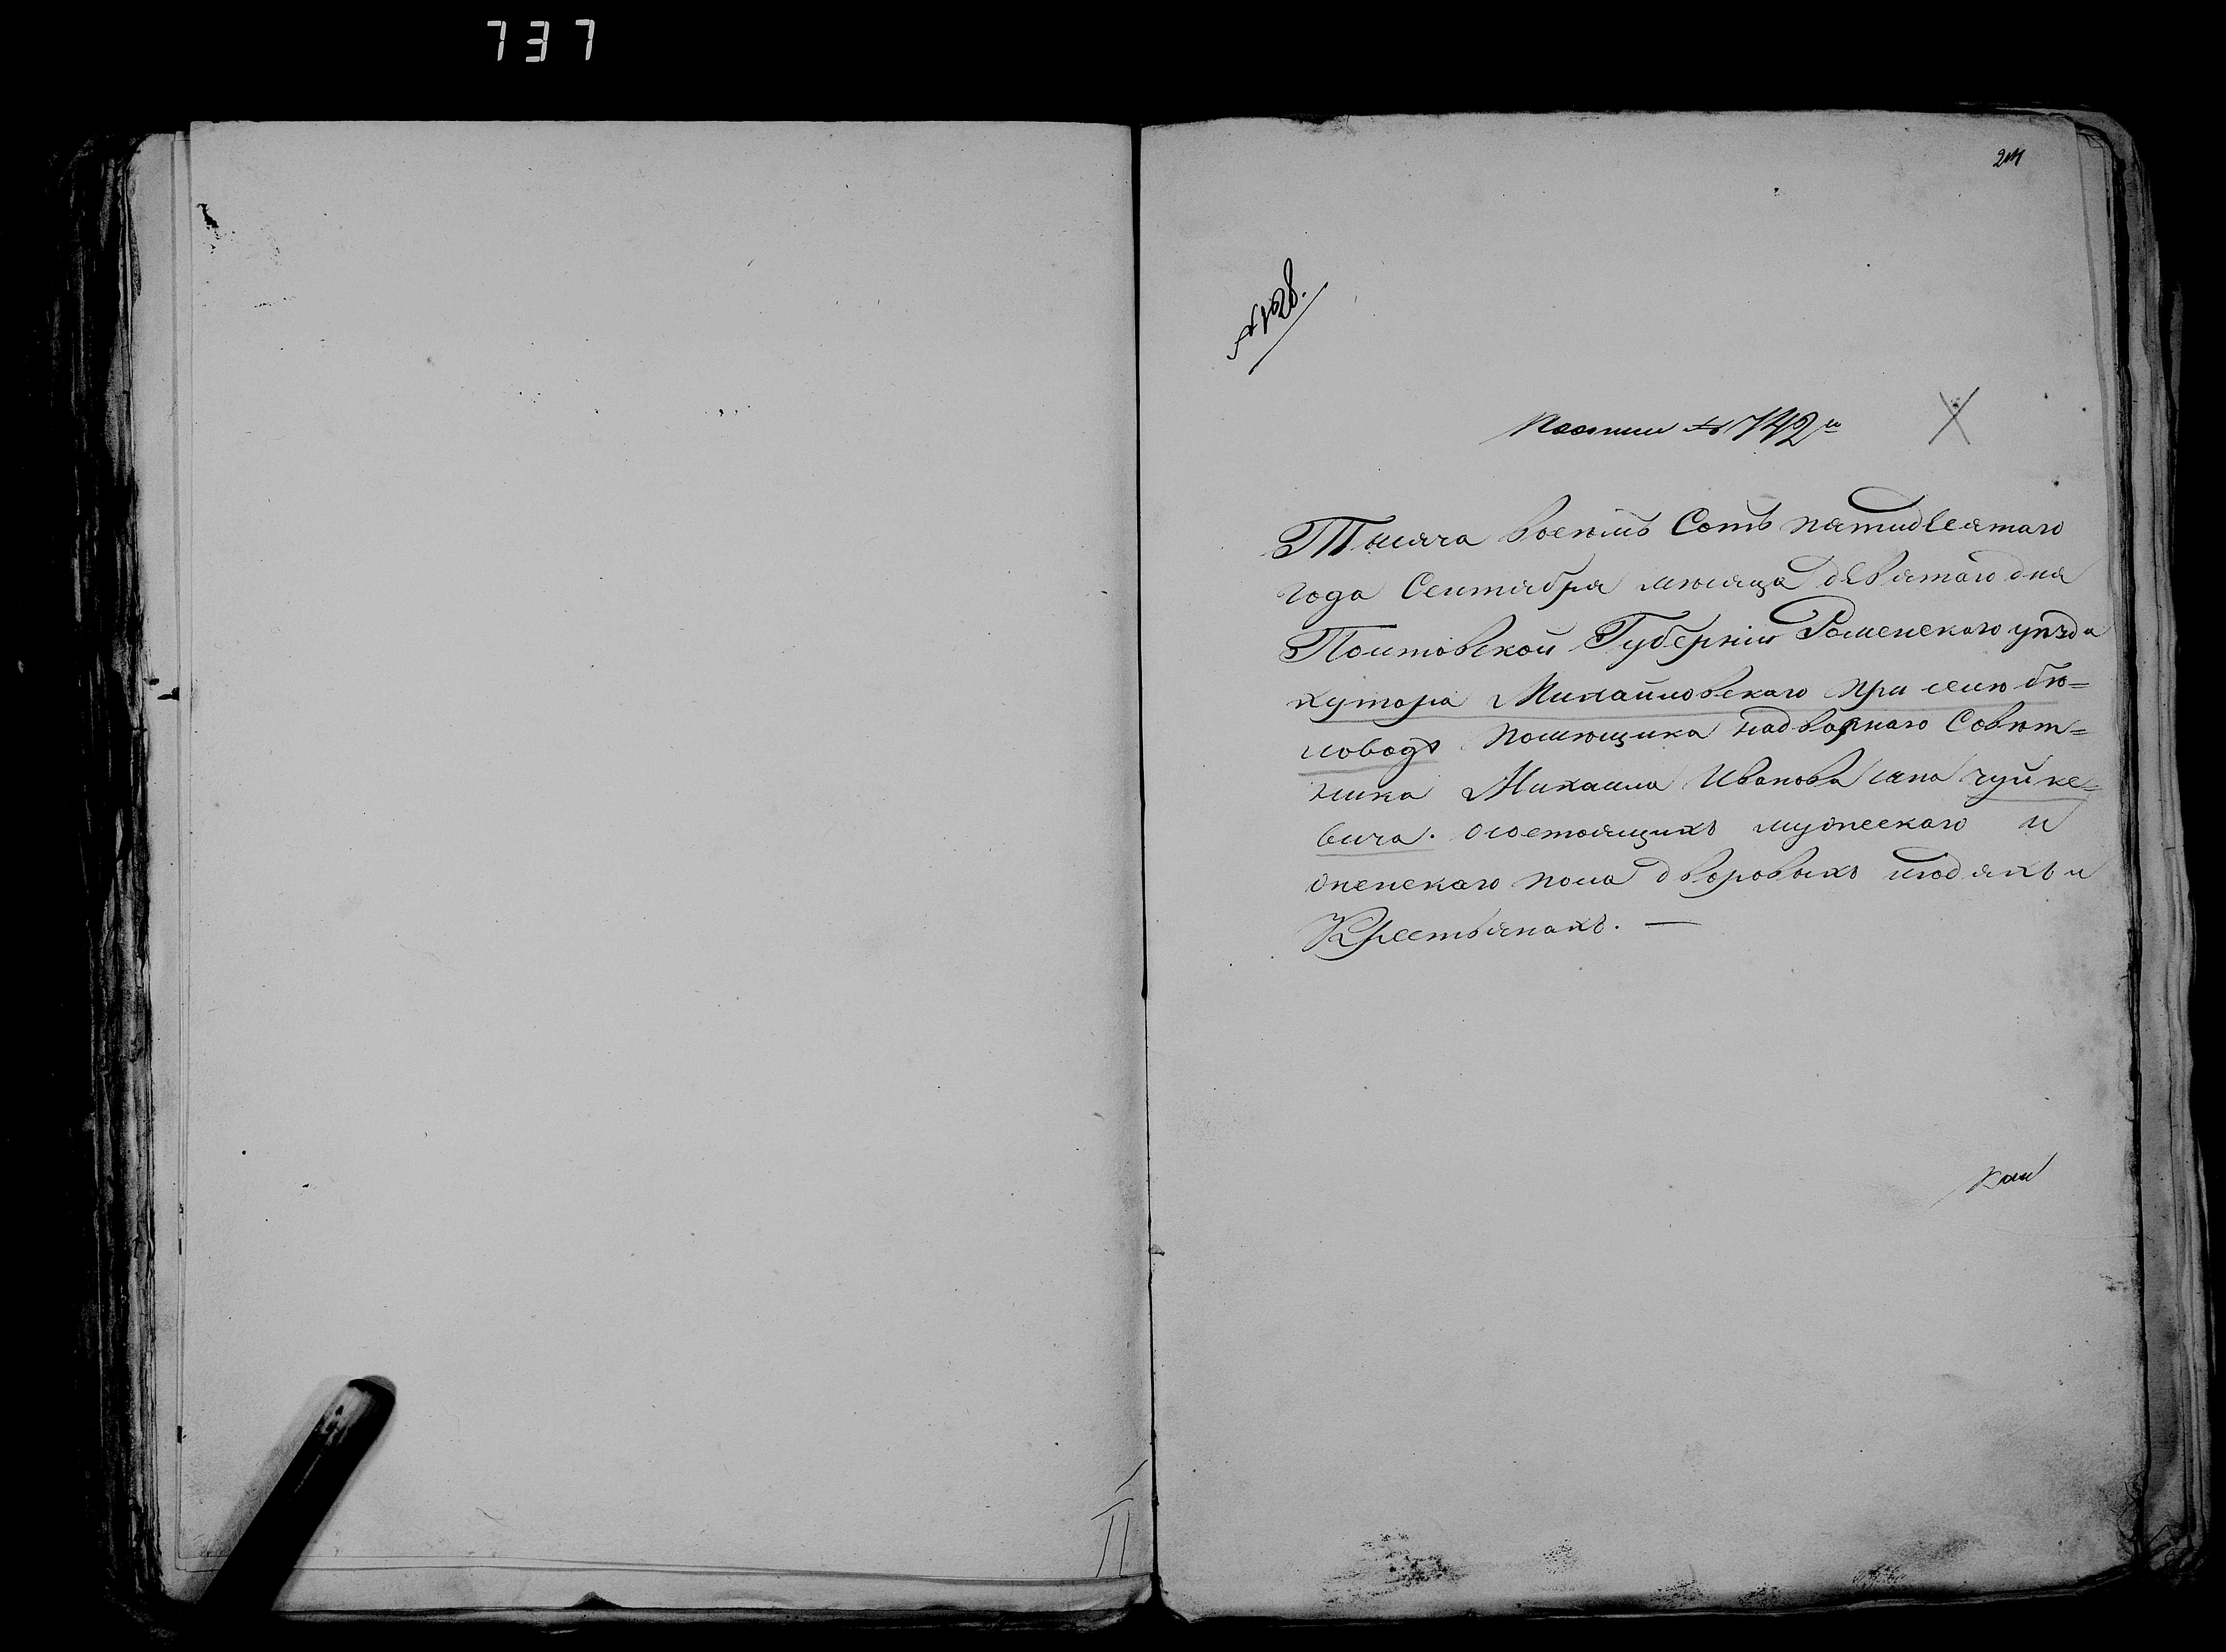 737
№ 128.
№ 742й
Тысяча восемь Сотъ пятидесятаго
года Сентября мѣсяца девятаго дня
Полтавской Губерніи Роменскаго уѣзда
хутора Михайловскаго при селѣ бѣ=
ловодѣ помѣщика надворнаго Совѣт=
ника Михаила Иванова сына чуйке=
вича. о состоящихъ мужескаго и
женскаго пола дворовыхъ людяхъ и
Крестьянахъ. —